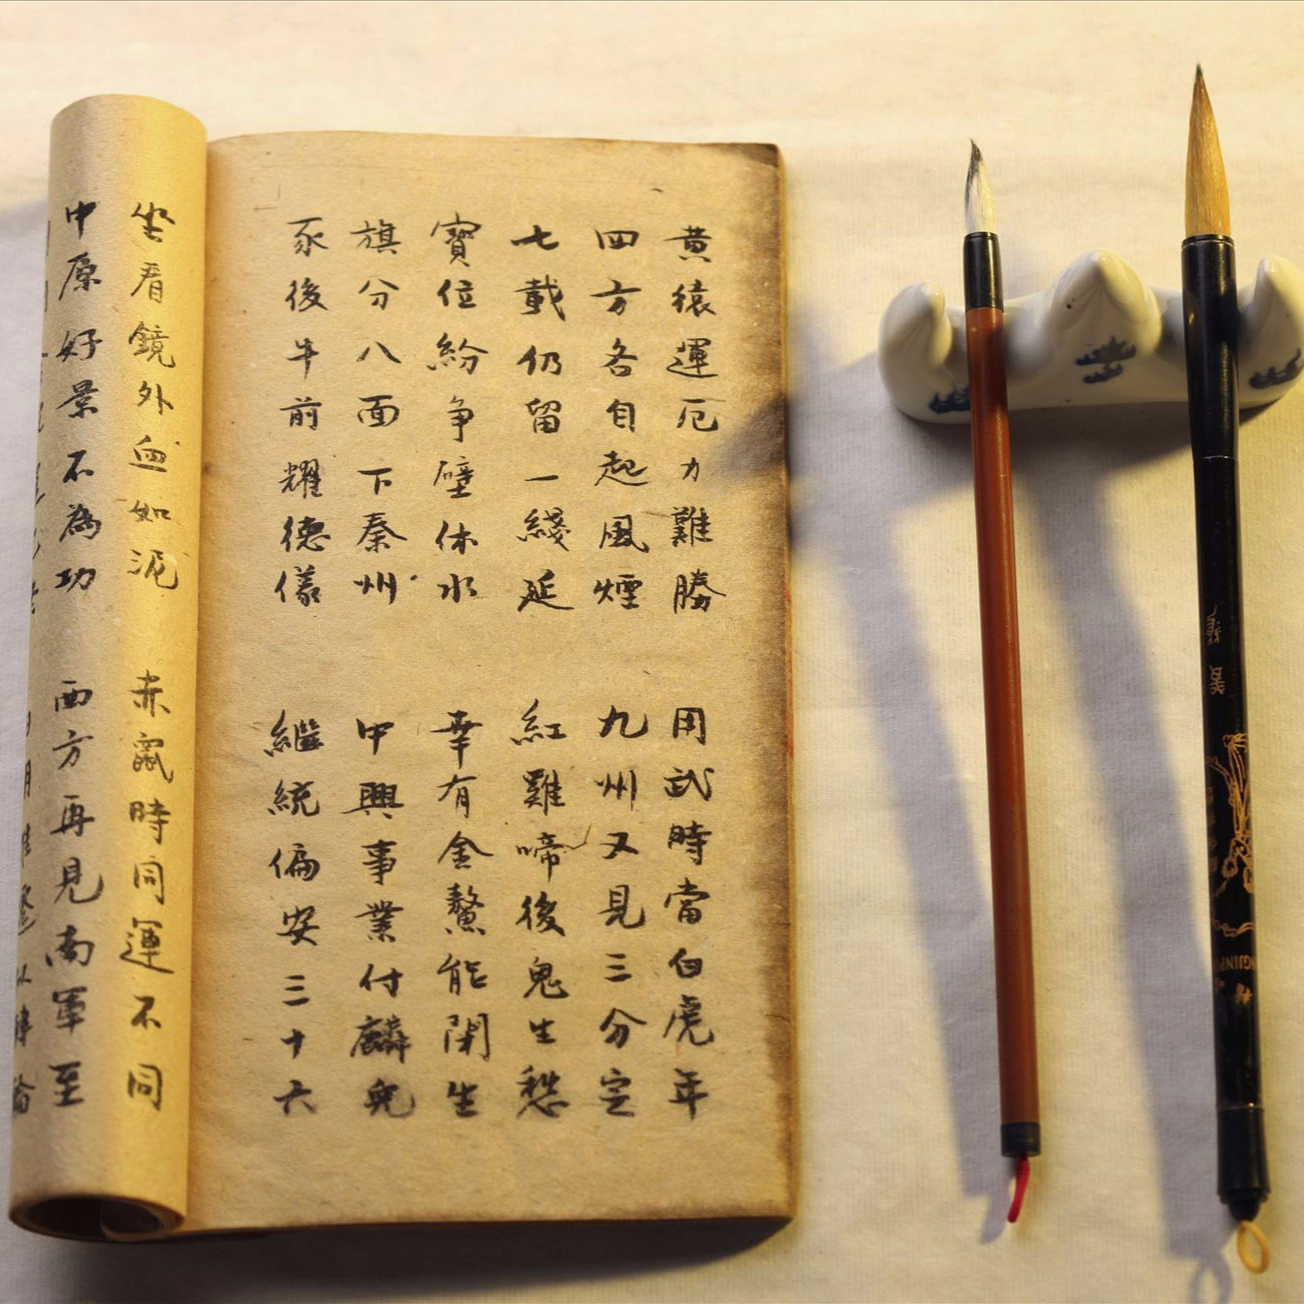 黄猿運厄力難勝 用武時當白虎年
四方各自起風煙 九州又見三分定
七載仍留一綫延 紅雞啼後鬼生愁
寶位紛争壁休水 幸有金鰲能閑生
旗分八面下秦州 中興事業付麟兒
豕後牛前耀德儀 繼統偏安三十六
坐看鏡外血如泥 赤鼠時同運不同
中原好景不為功 西方再見南軍至